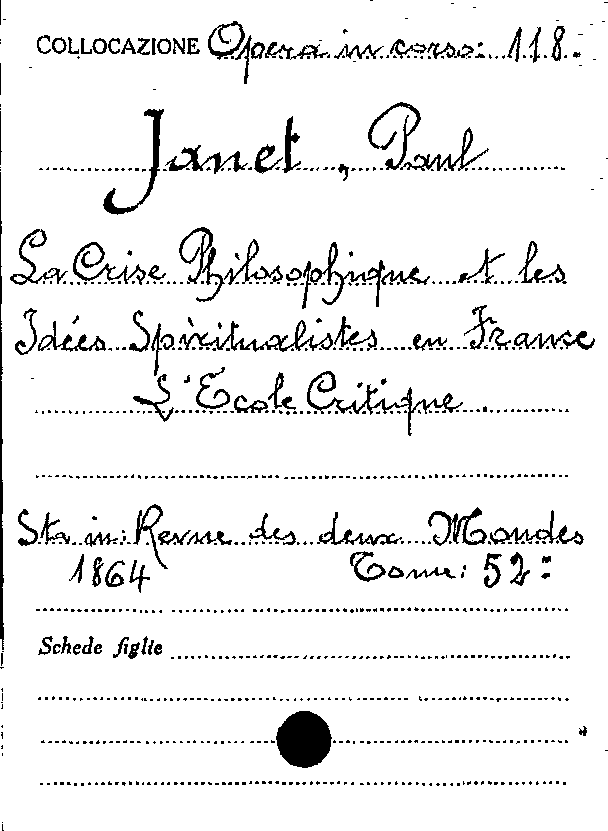 COLLOCAZIONE Opera in corso: 118.
Janet, Paul
La Crise Philosophique et les
Idées Spiritualistes en France
L'Ecole Critique.
Sta in: Revue des deux Mondes
1864 Tome: 52:
Schede figlie